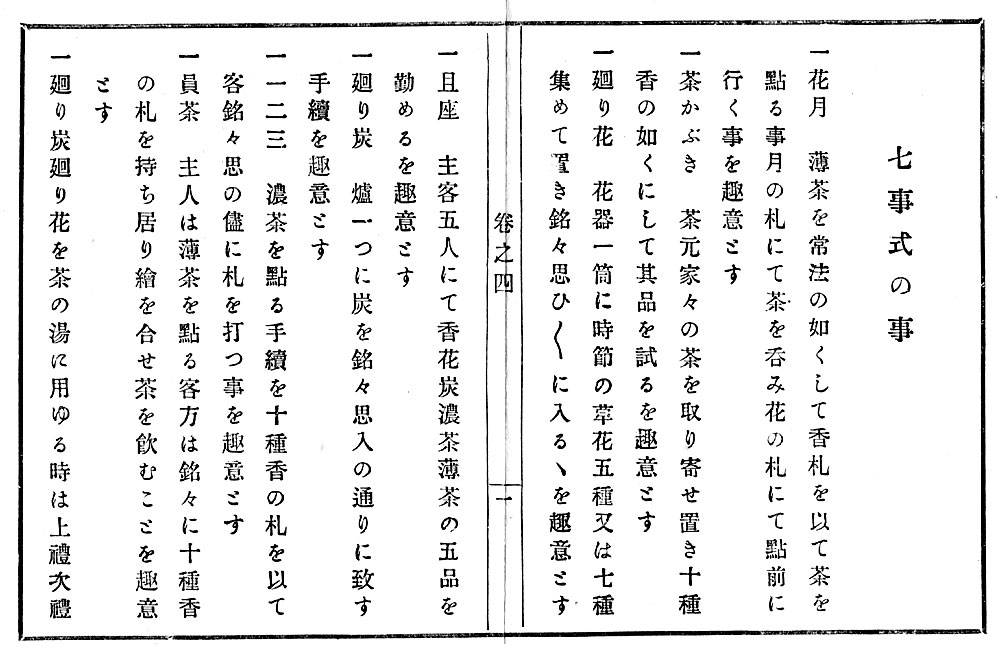 七事式の事
一花月　薄茶を常法の如くして香札を以て茶を
點る事月の札にて茶を呑み花の札にて點前に
行く事を趣意とす
一茶かぶき　茶元家々の茶を取り寄せ置き十種
香の如くにして其品を試るを趣意とす
一廻り花　花器一筒に時節の草花五種又は七種
集めて置き銘々思ひ〱に入るヽを趣意とす
卷之四
一
一且座　主客五人にて香花炭濃茶薄茶の五品を
勤めるを趣意とす
一廻り炭　爐一つに炭を銘々思入の通りに致す
手續を趣意とす
一一二三　濃茶を點る手續を十種香の札を以て
客銘々思の儘に札を打つ事を趣意とす
一員茶　主人は薄茶を點る客方は銘々に十種香
の札を持ち居り繪を合せ茶を飮むことを趣意
とす
一廻り炭廻り花を茶の湯に用ゆる時は上禮次禮